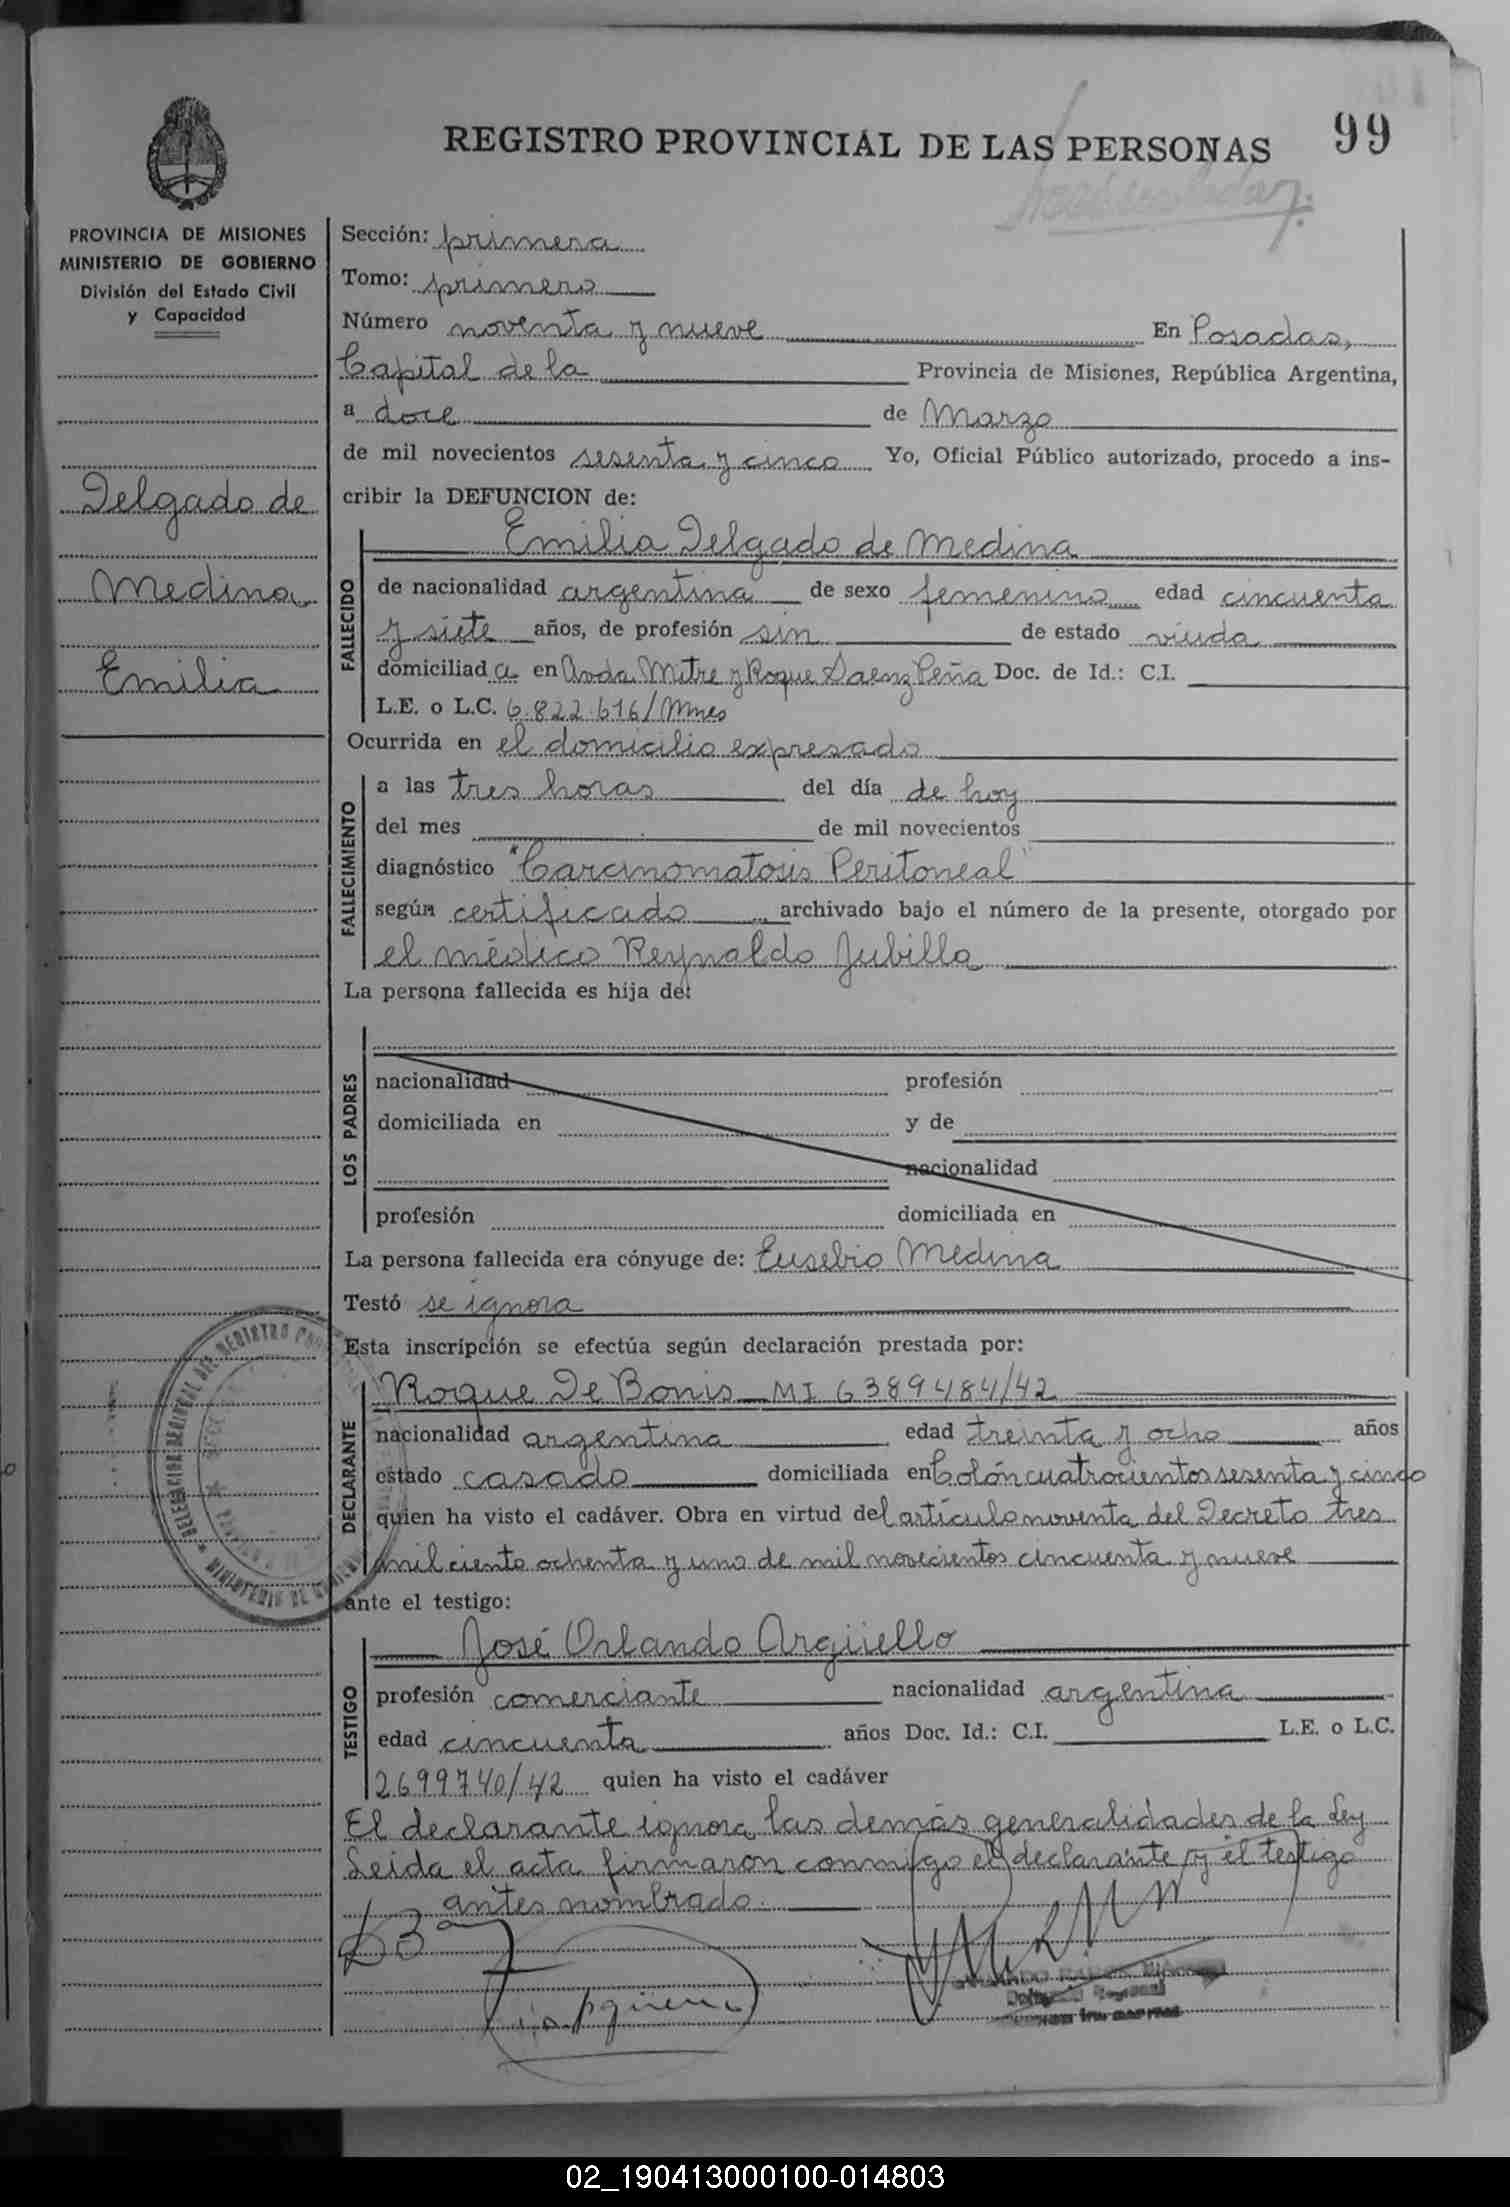 REGISTRO PROVINCIAL DE LAS PERSONAS 99
PROVINCIA DE MISIONES
MINISTERIO DE GOBIERNO
División del Estado Civil
y Capacidad
Delgado de
Medina
Emilia
Sección: primera
Tomo: primero
Número noventa y nueve En Posadas,
Capital de la Provincia de Misiones, República Argentina,
a doce de Marzo
de mil novecientos sesenta y cinco Yo, Oficial Público autorizado, procedo a ins-
cribir la DEFUNCION de:
Emilia Delgado de Medina
FALLECIDO
de nacionalidad argentina de sexo femenino edad cincuenta
y siete años, de profesión sin de estado viuda
domiciliad a en Avda. Mitre y Roque Saenz Peña Doc. de Id.: C.I.
L.E. o L.C. 6.822.616/Mnes
Ocurrida en el domicilio expresado
FALLECIMIENTO
a las tres horas del día de hoy
del mes de mil novecientos
diagnóstico "Carcinomatosis Peritoneal"
según certificado archivado bajo el número de la presente, otorgado por
el médico Reynaldo Jubilla
La persona fallecida es hija de:
LOS PADRES
nacionalidad profesión
domiciliada en y de
nacionalidad
profesión domiciliada en
La persona fallecida era cónyuge de: Eusebio Medina
Testó se ignora
Esta inscripción se efectúa según declaración prestada por:
Roque De Bonis MI 6389484/42
DECLARANTE
nacionalidad argentina edad treinta y ocho años
estado casado domiciliada en Colón cuatrocientos sesenta y cinco
quien ha visto el cadáver. Obra en virtud del artículo noventa del Decreto tres
mil ciento ochenta y uno de mil novecientos cincuenta y nueve
ante el testigo:
José Orlando Argüello
TESTIGO
profesión comerciante nacionalidad argentina
edad cincuenta años Doc. Id.: C.I. L.E. o L.C.
2699740/42 quien ha visto el cadáver
El declarante ignora las demás generalidades de la Ley
Leida el acta firmaron conmigo el declarante y el testigo
antes nombrado.
02_190413000100-014803